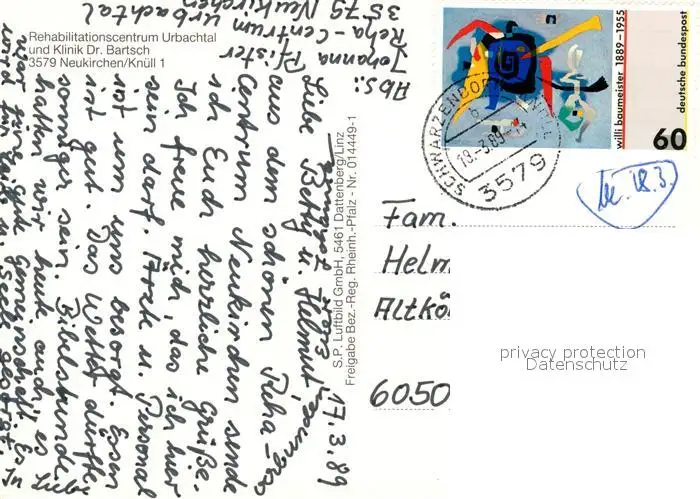 Abs.: Johanna Pfister
Reha-Centrum Urbachtal
3579 Neukirchen
Rehabilitationscentrum Urbachtal
und Klinik Dr. Bartsch
3579 Neukirchen/Knüll 1
17.3.89
Liebe Betty u. Helmut,
aus dem schönen Reha-
Centrum Neukirchen sende
ich Euch herzliche Grüße.
Ich freue mich, das ich hier
sein darf. Ärzte u. Personal
ist um uns besorgt. Essen
ist gut. Das Wetter dürfte
sonniger sein. Bibelstunde
hatten wir heut auch, es
Gemeinschaft. Es
wird für Leib u. Seele gesorgt.
In Liebe
S.P. Luftbild GmbH, 5461 Dattenberg/Linz
Freigabe Bez.-Reg. Rheinh.-Pfalz - Nr. 014449-1
willi baumeister 1889-1955
deutsche bundespost
60
18.-3.89
3579
18.3.
Fam.
Helm
Altkö
6050
privacy protection
Datenschutz